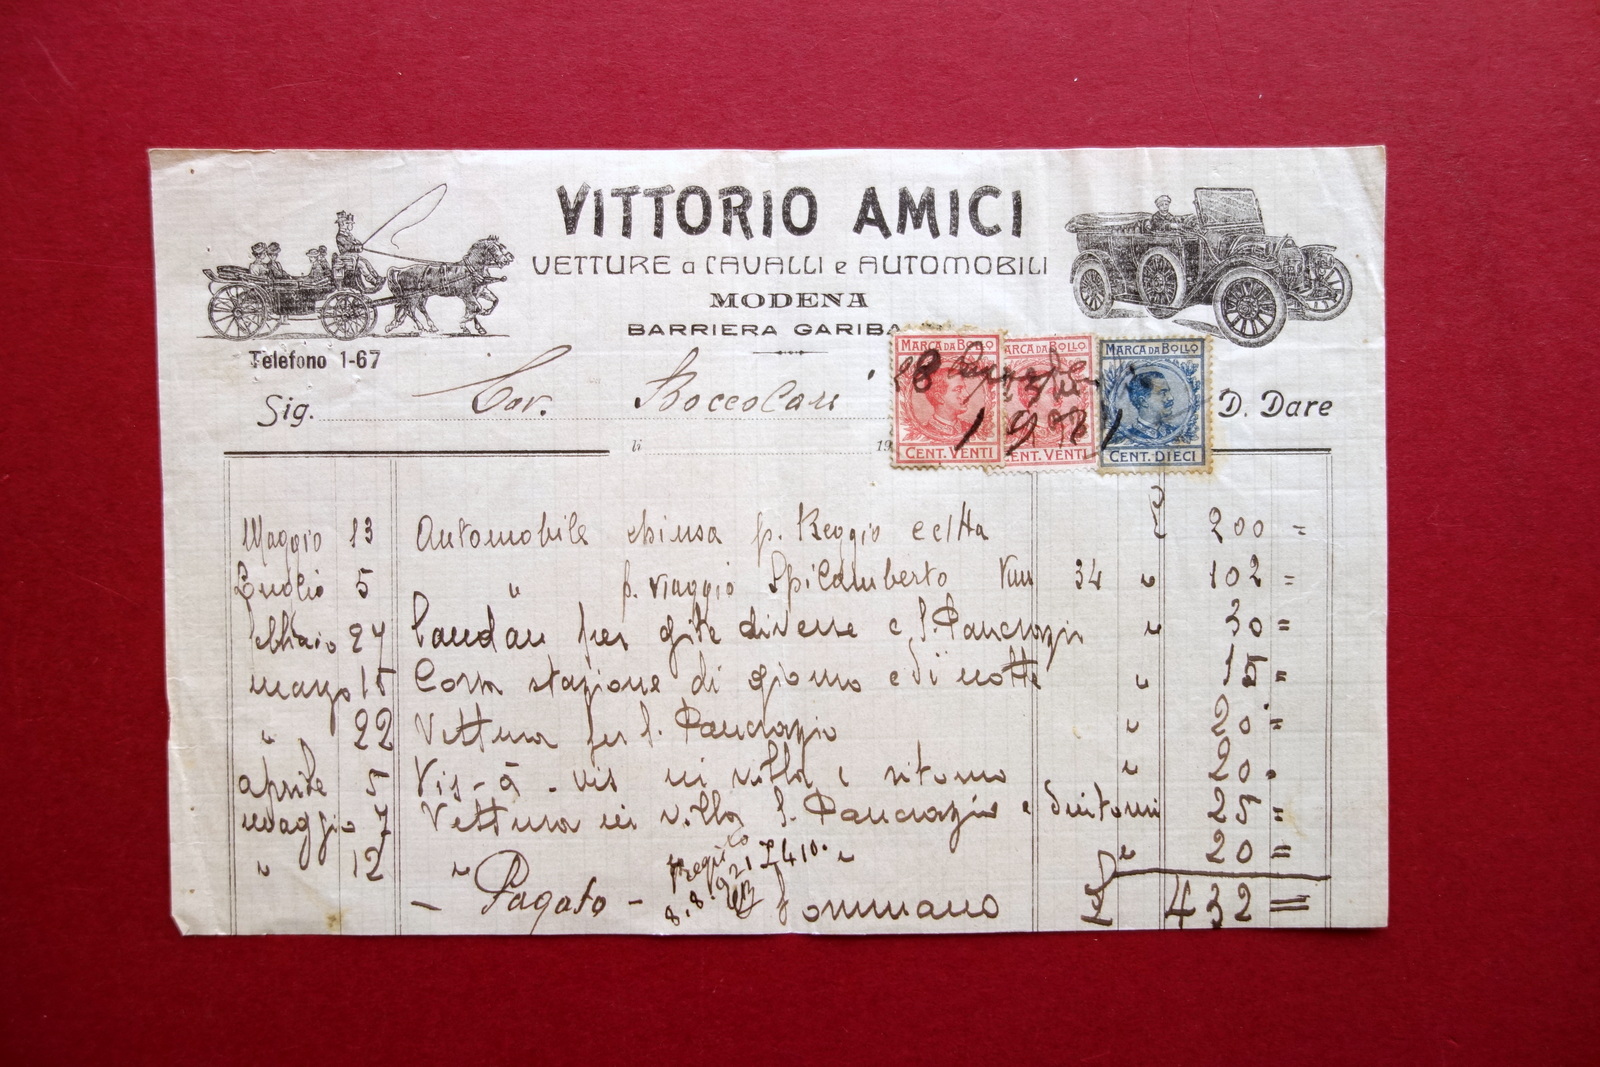 VITTORIO AMICI
VETTURE a CAVALLI e AUTOMOBILI
MODENA
BARRIERA GARIBA
Telefono 1-67
Sig. Cav. Boccolari D. Dare
li 19
MARCA DA BOLLO MARCA DA BOLLO MARCA DA BOLLO
8 1921
CENT. VENTI CENT. VENTI CENT. DIECI
Maggio 13 Automobile chiusa p. Reggio £ 200 =
Luglio 5 " p. viaggio Spilamberto 34 " 102 =
febbraio 27 Landau per gite diverse e S. Pancrazio " 30 =
marzo 15 Corsa stazione di giorno e di notte " 15 =
" 22 Vettura per S. Pancrazio " 20 =
aprile 5 Vis-à-vis in villa e ritorno " 20 =
maggio 7 Vettura in villa S. Pancrazio e 25 =
" 12 " " " 20 =
- Pagato - Sommano £ 432 =
8.8.921 £ 410.